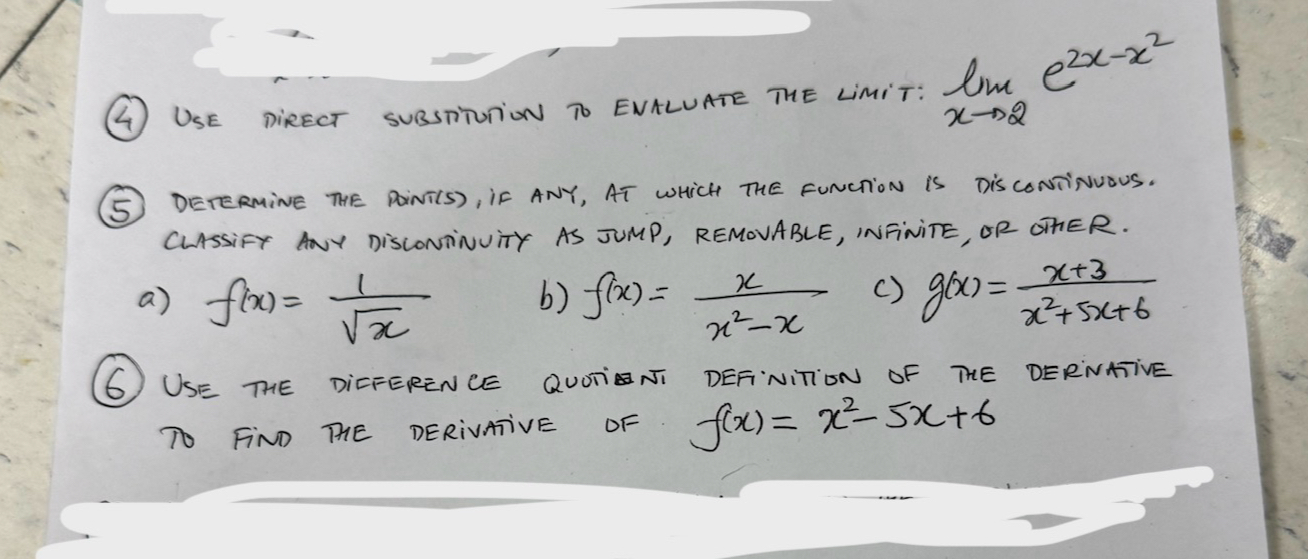 ④ USE DIRECT SUBSTITUTION TO EVALUATE THE LIMIT: lim x→2 e^{2x-x^2}
⑤ DETERMINE THE POINT(S), IF ANY, AT WHICH THE FUNCTION IS DISCONTINUOUS.
CLASSIFY ANY DISCONTINUITY AS JUMP, REMOVABLE, INFINITE, OR OTHER.
a) f(x) = 1/√x b) f(x) = x/(x²-x) c) g(x) = (x+3)/(x²+5x+6)
⑥ USE THE DIFFERENCE QUOTIENT DEFINITION OF THE DERIVATIVE
TO FIND THE DERIVATIVE OF f(x) = x²-5x+6